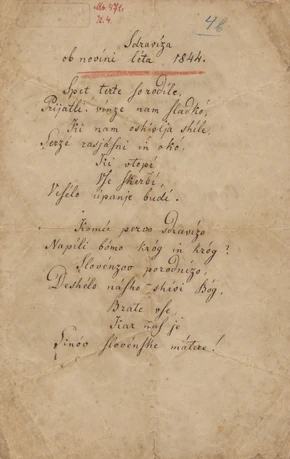 Ms. 471.
Zt. 4.
4b
Sdravíza
ob novini léta 1844.
Spet terte so rodile,
Prijatli. vínze nam sladkó,
Ki nam oshivlja shile,
Serze rasjásni in okó,
Ki vtopi
Vse skerbi,
Vesélo úpanje budí.
Komú pervo sdravízo
Napíli bómo króg in króg?
Slovénzov porodnízo,
Deshélo násho shívi Bóg,
Brate vse,
Kar nás je
Sinóv slovénske mátere!